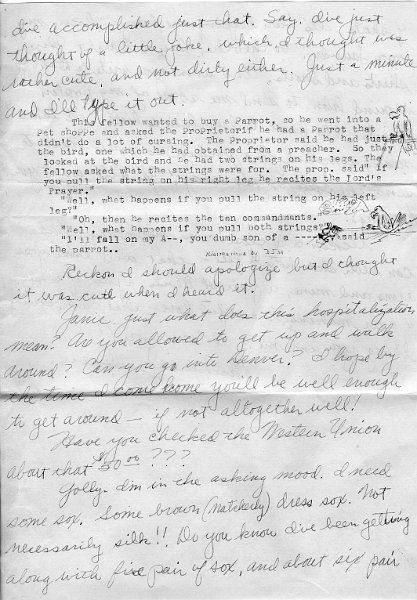 I've accomplished just that. Say, I've just
thought of a little joke, which I thought was
rather cute, and not dirty either. Just a minute
and I'll type it out.
This fellow wanted to buy a Parrot, so he went into a
Pet shoppe and asked the ProPrietorif he had a Parrot that
didn't do a lot of cursing. The Proprietor said he had just
the bird, one which he had obtained from a preacher. So they
looked at the bird and he had two strings on his legs. The
fellow asked what the strings were for. The prop. said" if
you pull the string on his right leg he recites the Lord's
Prayer."
"Well, what happens if you pull the string on his left
leg?"
"Oh, then he recites the ten commandments."
"Well, what happens if you pull both strings"
"I'll fall on my A--, you dumb son of a ----" said
the parrot..
Reckon I should apologize but I thought
it was cute when I heard it.
Janie just what does this hospitalization
mean? Are you allowed to get up and walk
around? Can you go into Denver? I hope by
the time I come home you'll be well enough
to get around — if not altogether well!
Have you checked the Western Union
about that $50.00 ???
Golly- I'm in the asking mood. I need
some sox. Some brown (matchedy) dress sox. Not
necessarily silk!! Do you know I've been getting
along with five pair of sox, and about six pair